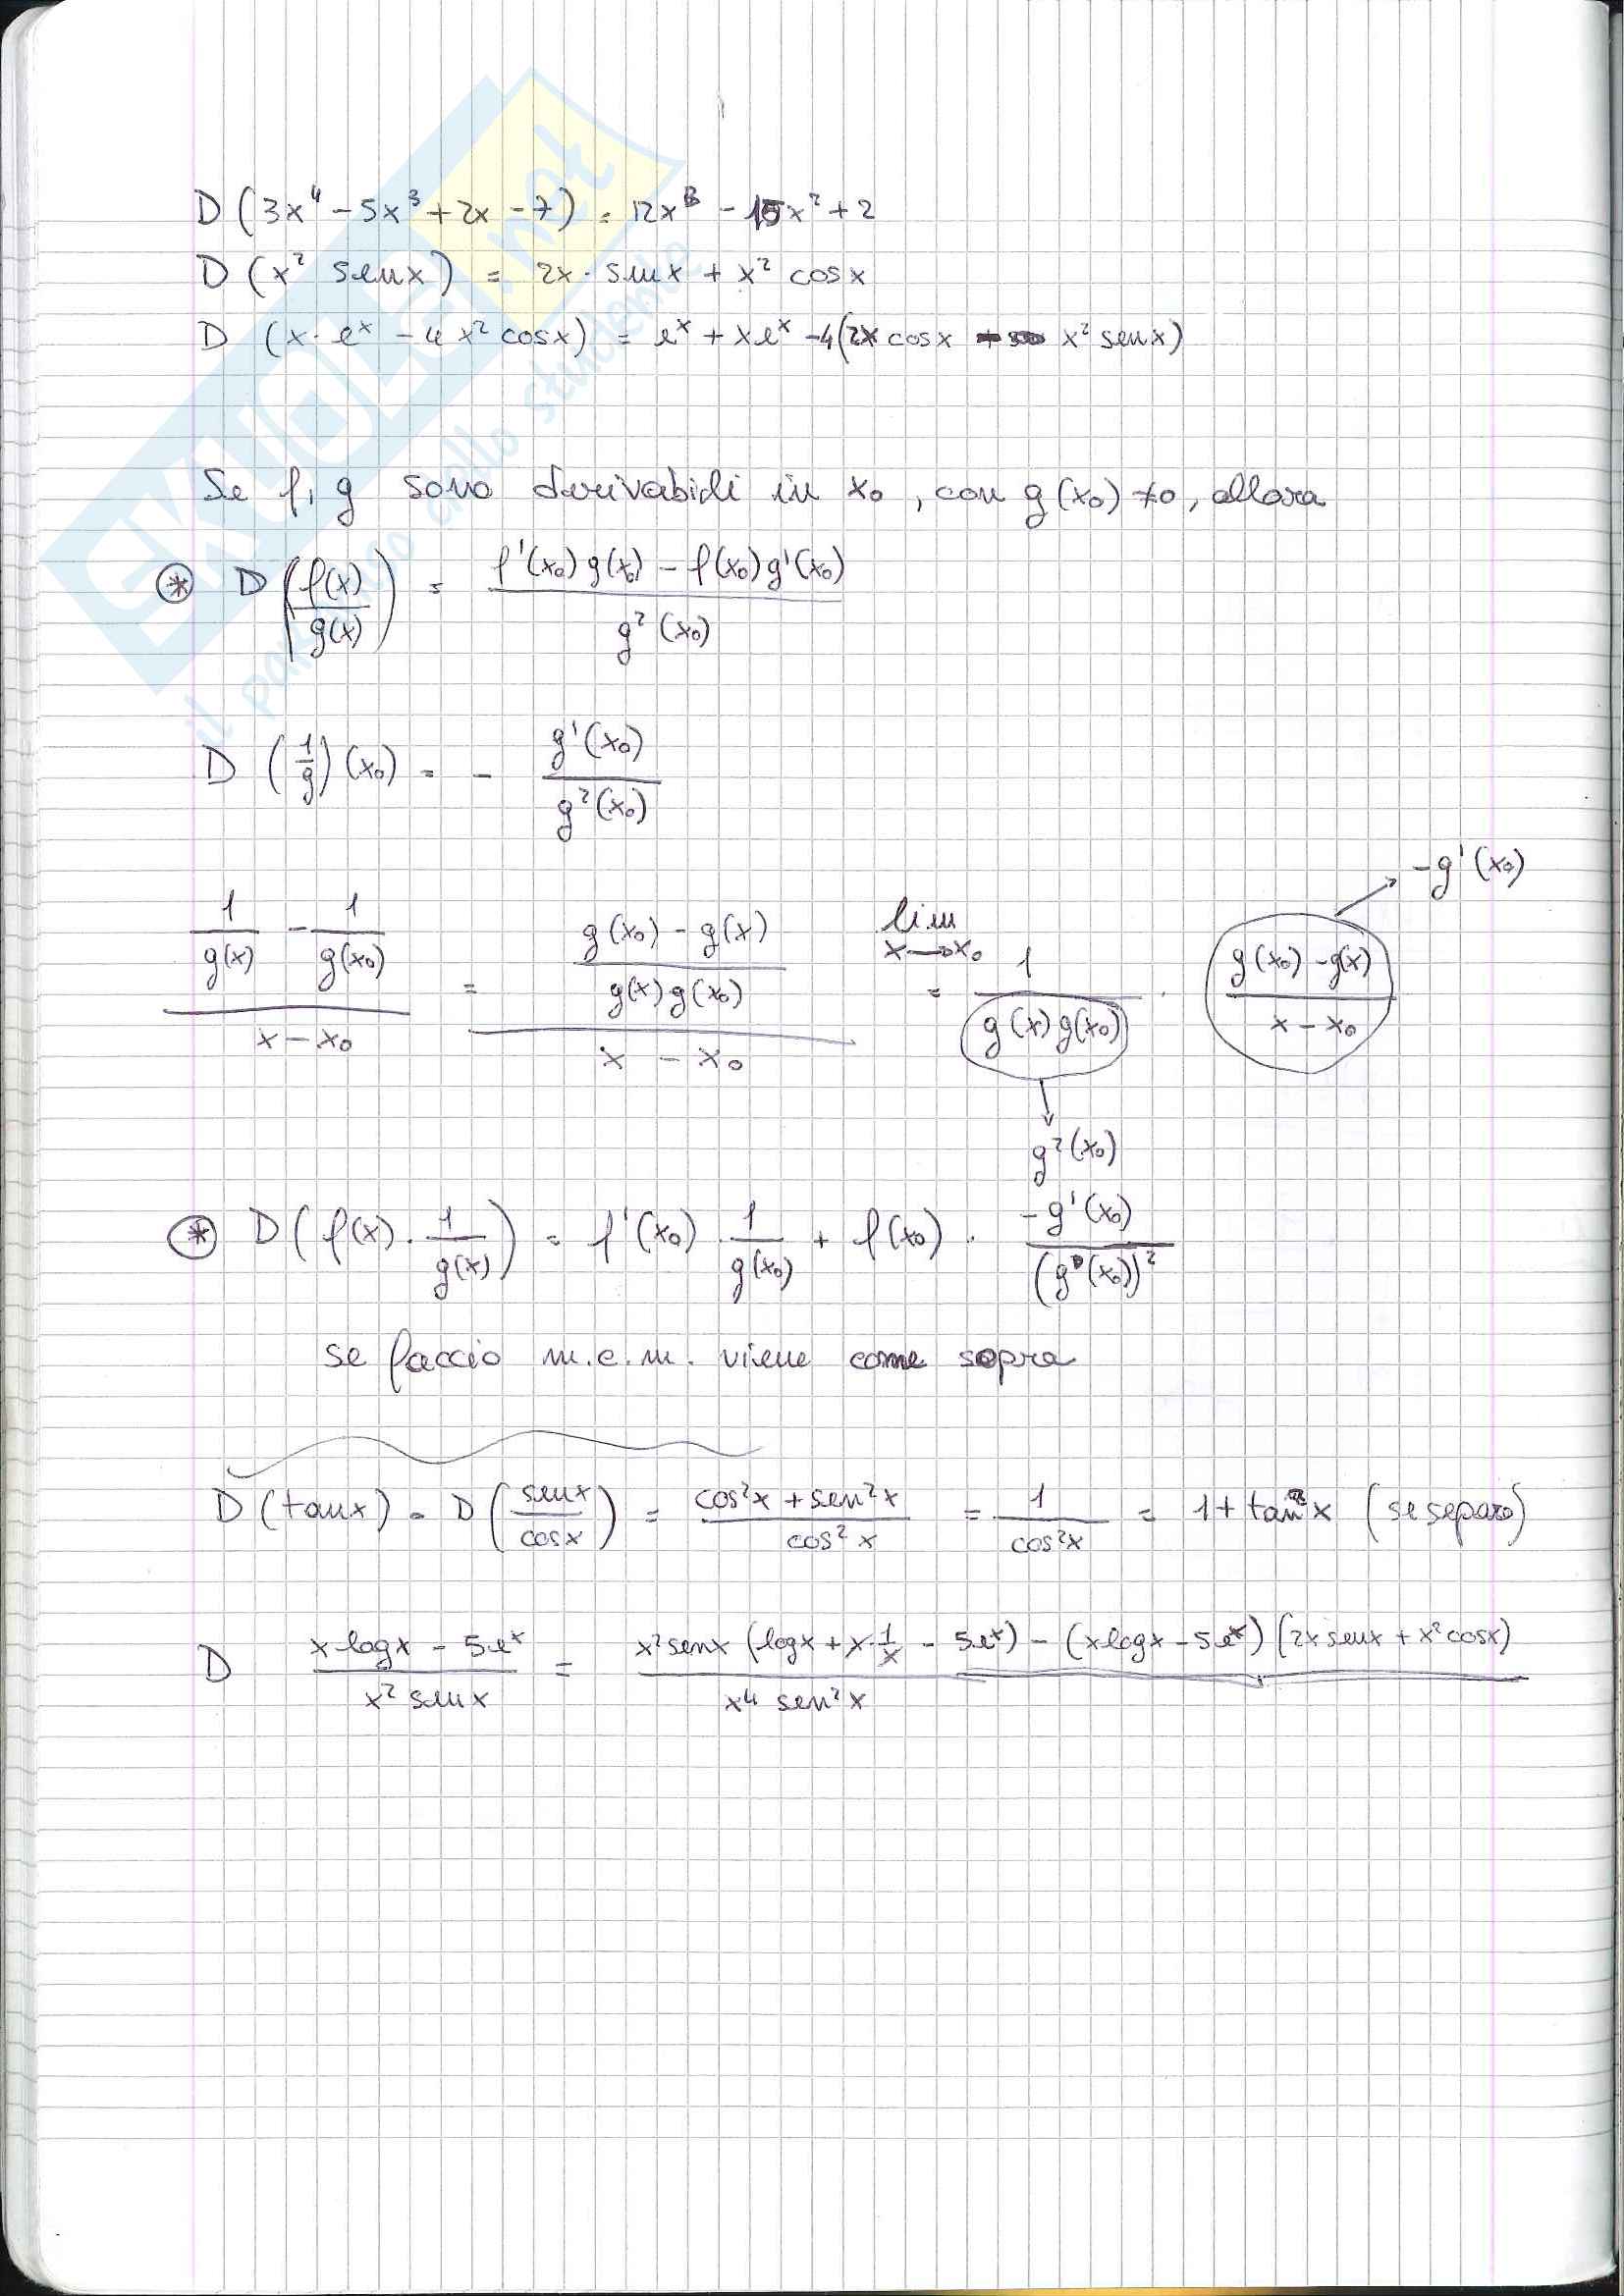 D (3x⁴ - 5x³ + 2x - 7) = 12x³ - 15x² + 2
D (x² senx) = 2x · senx + x² cosx
D (x · eˣ - 4x² cosx) = eˣ + xeˣ - 4(2x cosx - x² senx)
Se f, g sono derivabili in x₀, con g(x₀) ≠ 0, allora
⊛ D (f(x)/g(x)) = (f'(x₀) g(x₀) - f(x₀) g'(x₀)) / g²(x₀)
D (1/g)(x₀) = - g'(x₀)/g²(x₀)
-g'(x₀)
(1/g(x) - 1/g(x₀)) / (x - x₀) = ((g(x₀) - g(x)) / (g(x) g(x₀))) / (x - x₀) = lim x→x₀ 1/(g(x) g(x₀)) · (g(x₀) - g(x))/(x - x₀)
g²(x₀)
⊛ D (f(x) · 1/g(x)) = f'(x₀) · 1/g(x₀) + f(x₀) · -g'(x₀)/(g(x₀))²
se faccio m.c.m. viene come sopra
D (tanx) = D (senx/cosx) = (cos²x + sen²x)/cos²x = 1/cos²x = 1 + tan²x (se separo)
D (x logx - 5eˣ)/(x² senx) = (x² senx (logx + x · 1/x - 5eˣ) - (x logx - 5eˣ) (2x senx + x² cosx)) / (x⁴ sen²x)
SKUOLA.net
il paradiso dello studente